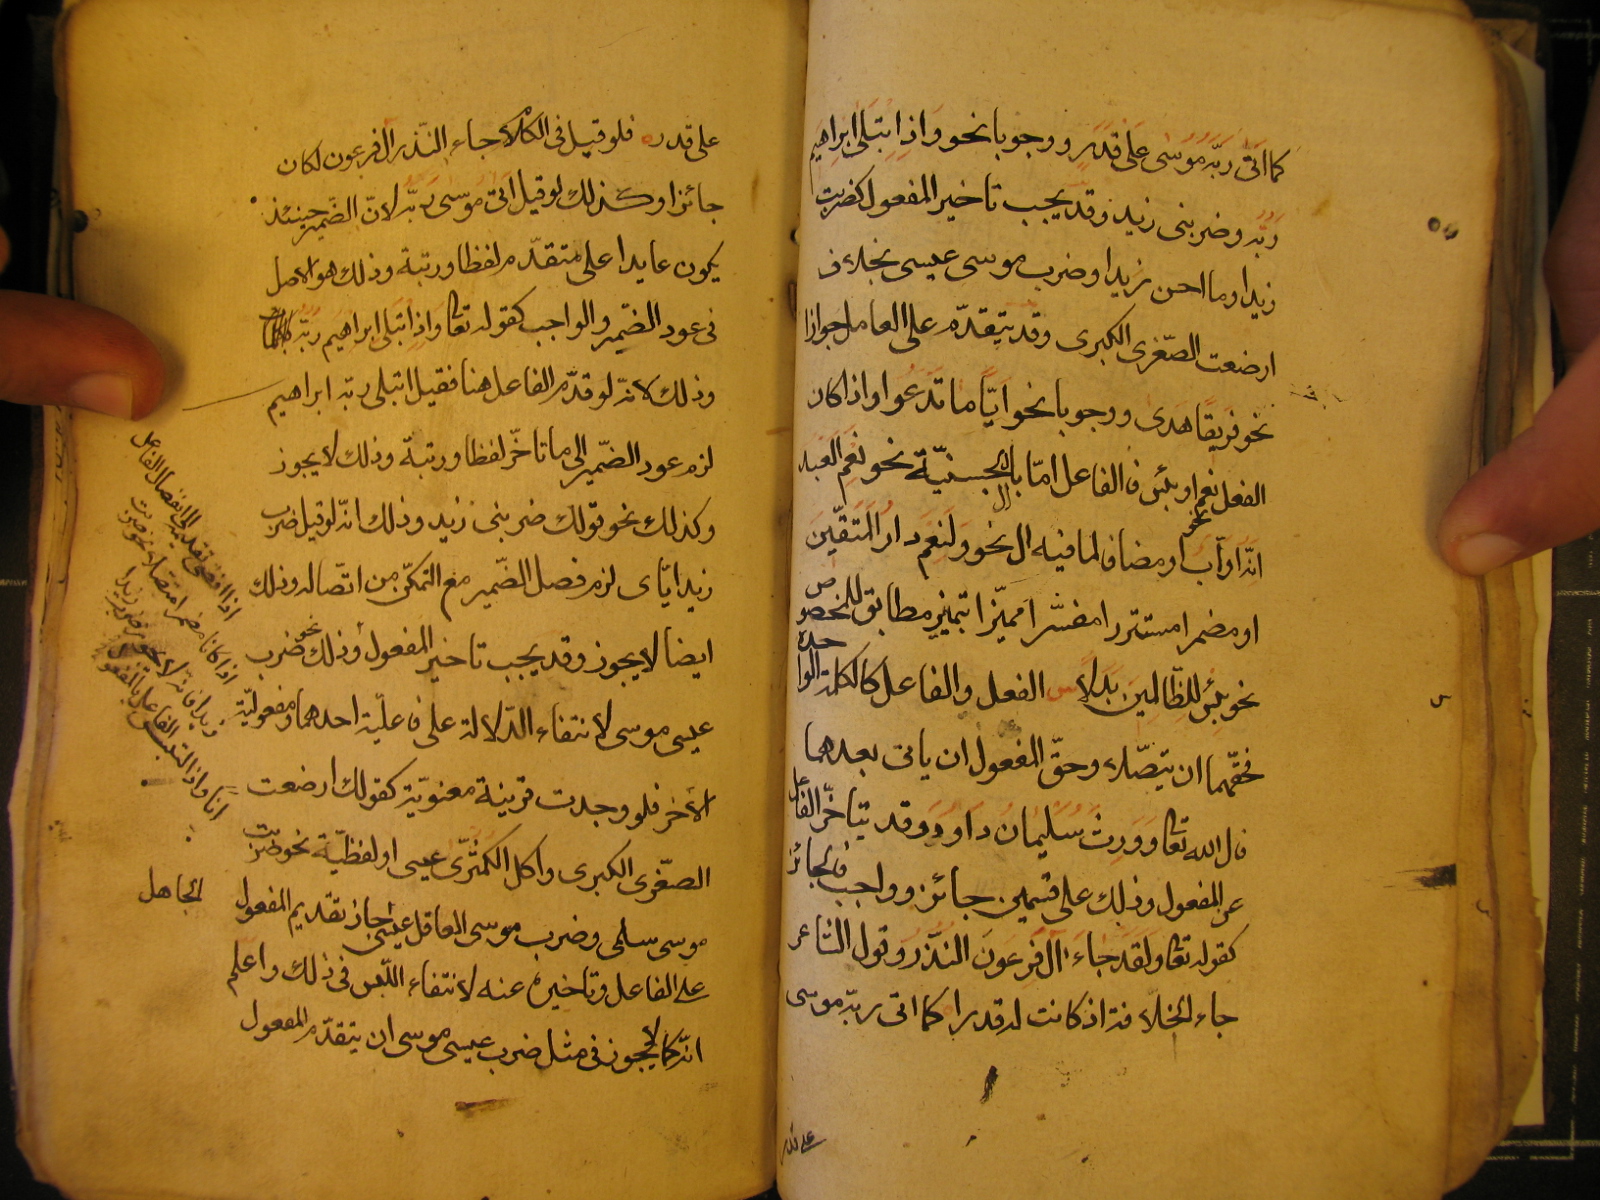 كما اتى ربّه موسى على قدر ووجوبا نحو واذا بتلى ابراهيم
ربّه وضربنى زيد وقد يجب تاخير المفعول كضربت
زيدا وما احسن زيدا وضرب موسى عيسى بخلاف
ارضعت الصّغرى الكبرى وقد يتقدّم على العامل جوازا
نحو فريقا هدى ووجوبا نحو ايّاما تدعوا واذا كان
الفعل نعم او بئس فالفاعل امّا بال الجنسيّة نحو نعم العبد
انّه اوّاب او مضاف لما فيه ال نحو ولنعم دار المتقّين
او مضمر مستتر مفسّر مميّزا بتميز مطابق للمخصوص
نحو بئس للظّالمين بدلا س الفعل والفاعل كالكلمة الواحدة
فحقّهما ان يتصّلا وحقّ المفعول ان ياتى بعدهما
قال الله تعا وورث سليمان داود وقد يتاخّر الفاعل
عن المفعول وذلك على قسمين جائز وواجب فالجائز
كقوله تعا ولقد جاء آل فرعون النّذر وقول الشاعر
جاء الخلافة اذ كانت له قدرا كما اتى ربّه موسى
على قدر
على قدره فلو قيل فى الكلام جاء النّذر آل فرعون لكان
جائزا وكذلك لو قيل اتى موسى ربّه لانّ الضّمير حينئذ
يكون عايدا على متقدّم لفظا ورتبة وذلك هو الاصل
فى عود الضّمير والواجب كقوله تعا واذا بتلى ابراهيم ربّه
وذلك لانّه لو قدّم الفاعل هنا فقيل ابتلى ربّه ابراهيم
لزم عود الضّمير الى ما تاخّر لفظا ورتبة وذلك لا يجوز
وكذلك نحو قولك ضربنى زيد وذلك انّه لو قيل ضرب
زيد ايّاى لزم فصل الضّمير مع التمكّن من اتصاله وذلك
ايضا لا يجوز وقد يجب تاخير المفعول وذلك نحو ضرب
عيسى موسى لانتفاء الدّلالة على فاعليّة احدهما ومفعوليّة
الآخر فلو وجدت قرينة معنويّة كقولك ارضعت
الصّغرى الكبرى واكل الكمثّرى عيسى او لفظيّة نحو ضربت
موسى سلمى وضرب موسى العاقل عيسى جاز تقديم المفعول
على الفاعل وتاخيره عنه لانتفاء اللّبس فى ذلك واعلم
انّه كما لا يجوز فى مثل ضرب عيسى موسى ان يتقدّم المفعول
الجاهل